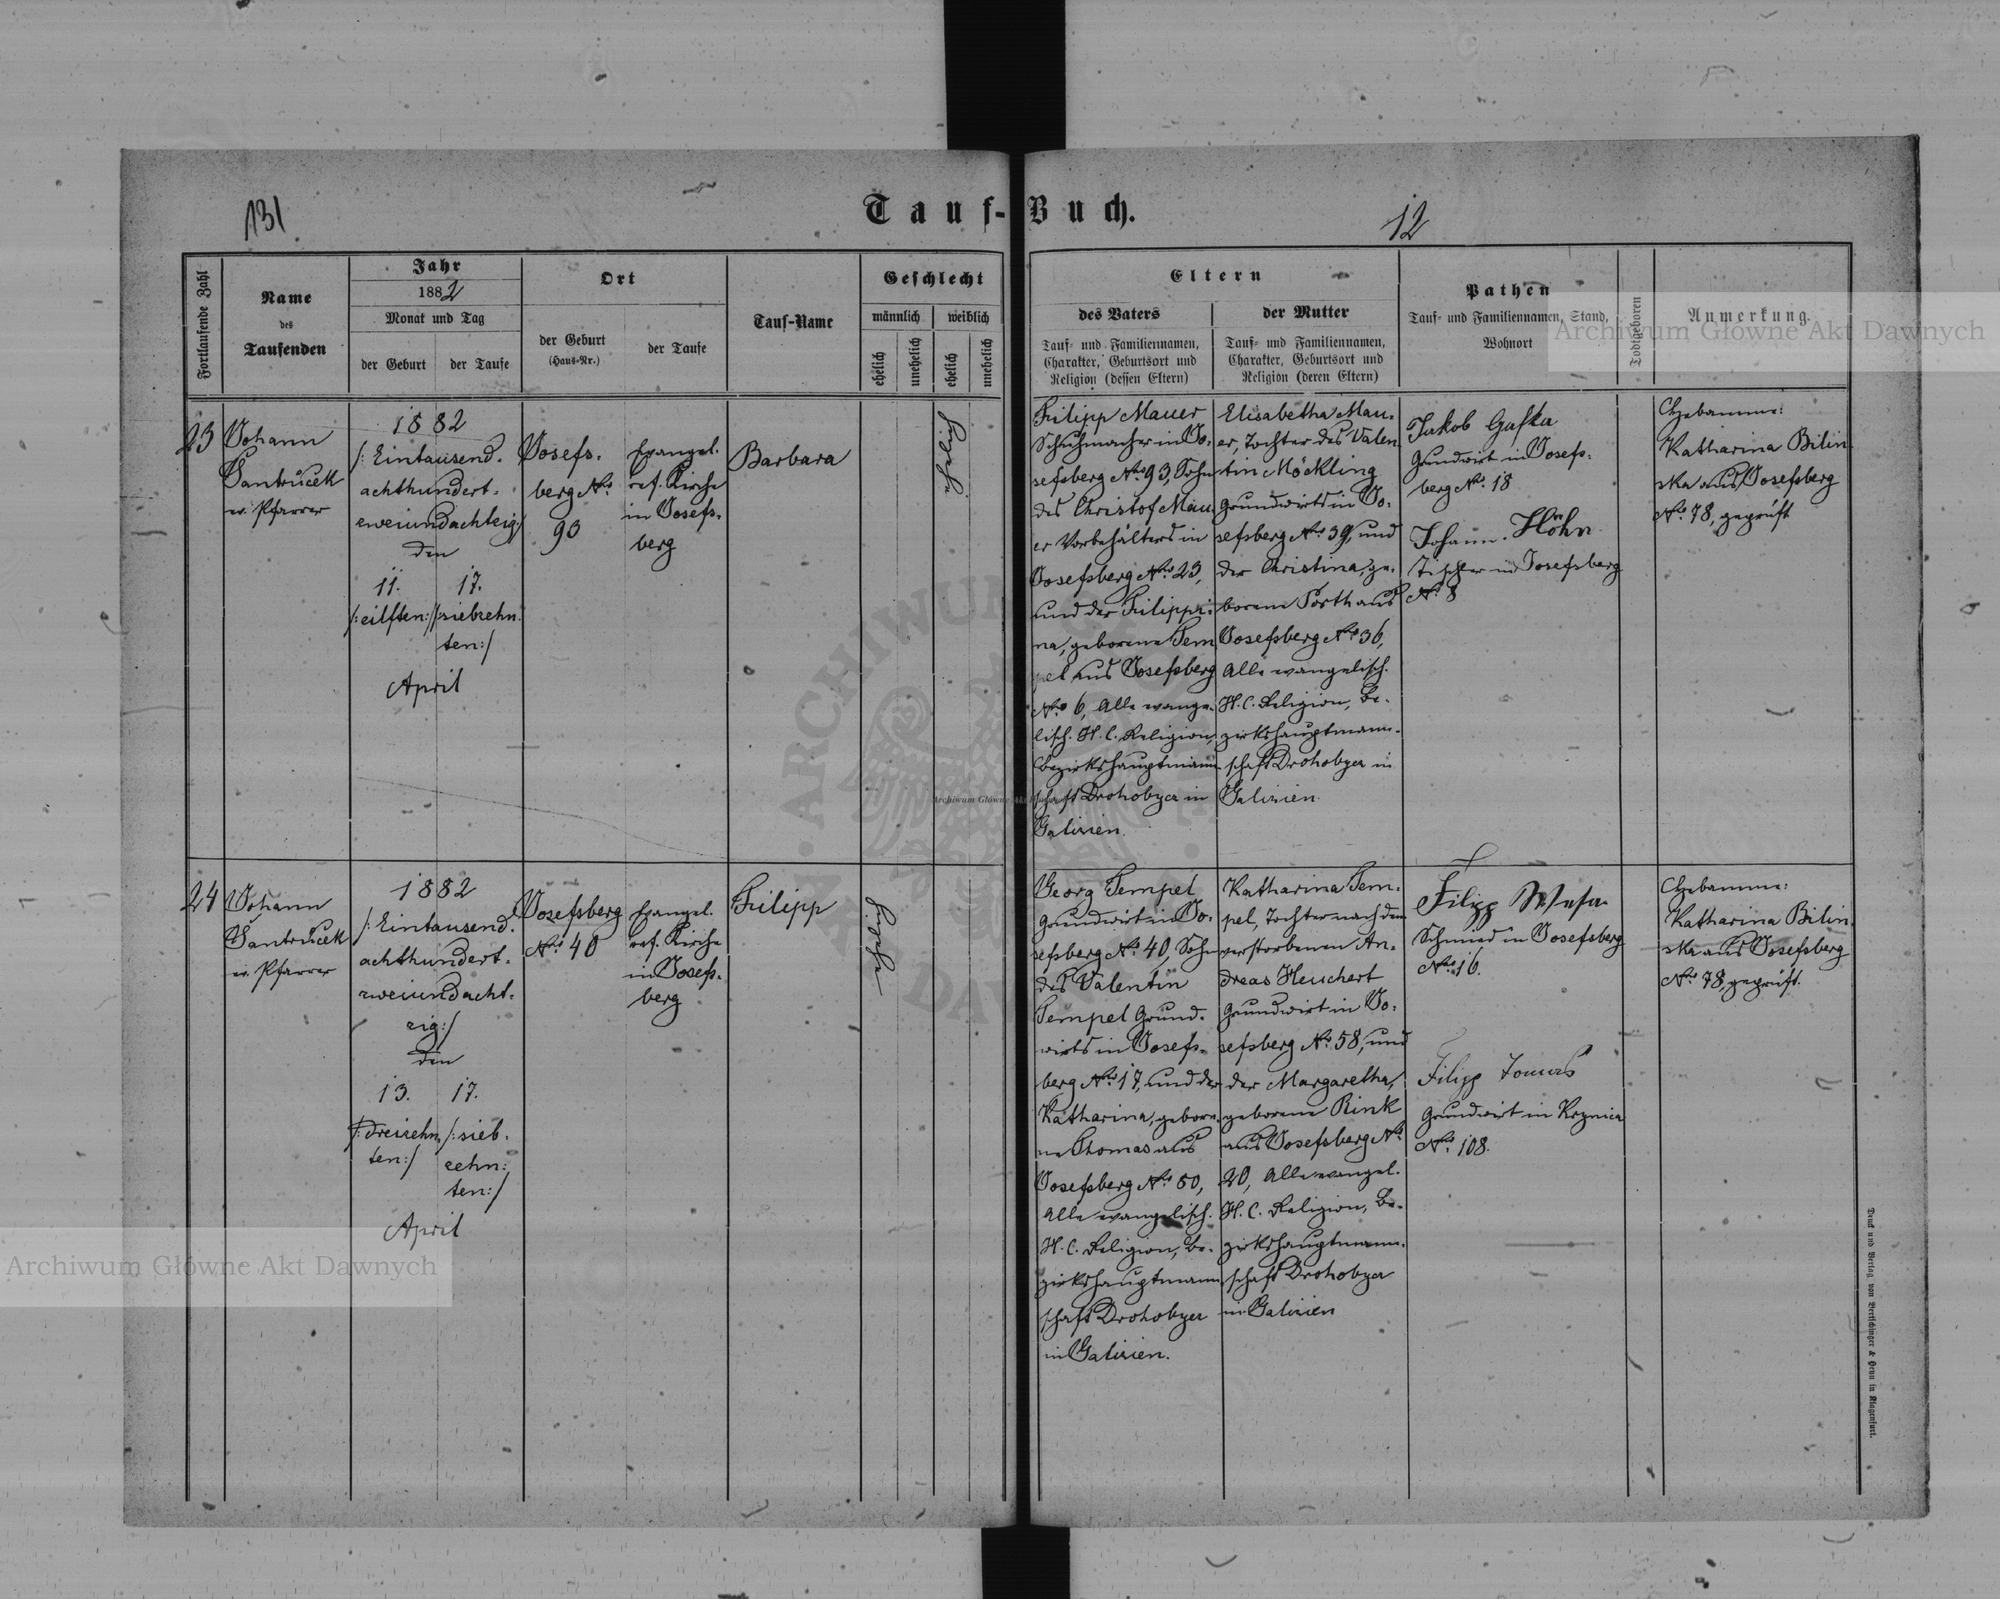 131
Tauf-Buch.
12
Fortlaufende Zahl
Name
des
Taufenden
Jahr
1882
Monat und Tag
der Geburt
der Taufe
Ort
der Geburt
(Haus-Nr.)
der Taufe
Tauf-Name
Geschlecht
männlich
weiblich
ehelich
unehelich
ehelich
unehelich
Eltern
des Vaters
Tauf- und Familiennamen,
Charakter, Geburtsort und
Religion (dessen Eltern)
der Mutter
Tauf- und Familiennamen,
Charakter, Geburtsort und
Religion (deren Eltern)
Pathen
Tauf- und Familiennamen, Stand,
Wohnort
Todtgeboren
Anmerkung.
23
Johann
Jantrůček
ev. Pfarrer
1882
/: Eintausend.
achthundert.
zweiundachtzig:/
den
11. 17.
/: eilften:/ /: siebzehn.
ten:/
April
Josefs.
berg No.
93
Evangel.
ref. Kirche
in Josefs.
berg
Barbara
ehelich
Filipp Mauer
Schuhmacher in Jo.
sefsberg No. 93, Sohn
des Christof Mau
er Vorbehälters in
Josefsberg No. 23,
und der Filippi.
na, geborene Tem
pel aus Josefsberg
No. 6, Alle evange.
lisch. H. C. Religion,
Bezirkshauptmann
schaft Drohobycz in
Galizien.
Elisabetha Mau.
er, Tochter des Valen
tin Möckling
Grundwirts in Jo.
sefsberg No. 39, und
der Christina, ge.
borene Porth aus
Josefsberg No. 36,
Alle evangelisch.
H. C. Religion, Be.
zirkshauptmann.
schaft Drohobycz in
Galizien.
Jakob Gafka
Grundwirt in Josefs.
berg No. 18
Johann Höhn
Tischler in Josefsberg
No. 8
Hebamme:
Katharina Bilin
ska aus Josefsberg
No. 78, geprüft
24
Johann
Jantrůček
ev. Pfarrer
1882
/: Eintausend.
achthundert.
zweiundacht.
zig:/
den
13. 17.
/: dreizehn. /: sieb.
ten:/ zehn:
ten:/
April
Josefsberg
No. 40
Evangel.
ref. Kirche
in Josefs.
berg
Filipp
ehelich
Georg Tempel
Grundwirt in Jo.
sefsberg No. 40, Sohn
des Valentin
Tempel Grund.
wirts in Josefs.
berg No. 17, und der
Katharina, gebore.
ne Thomas aus
Josefsberg No. 50,
Alle evangelisch.
H. C. Religion, Be.
zirkshauptmann
schaft Drohobycz
in Galizien.
Katharina Tem.
pel, Tochter nach dem
verstorbenen An.
dreas Heuchert
Grundwirt in Jo.
sefsberg No. 58, und
der Margaretha,
geborene Rink
aus Josefsberg No.
20, Alle evangel.
H. C. Religion, Be.
zirkshauptmann.
schaft Drohobycz
in Galizien
Filipp
Schmied in Josefsberg
No. 16.
Filipp Tomas
Grundwirt in Krynica
No. 108.
Hebamme:
Katharina Bilin.
ska aus Josefsberg
No. 78, geprüft.
Druck und Verlag von Bertschinger & Heyn in Klagenfurt.
Archiwum Główne Akt Dawnych
Archiwum Główne Akt Dawnych